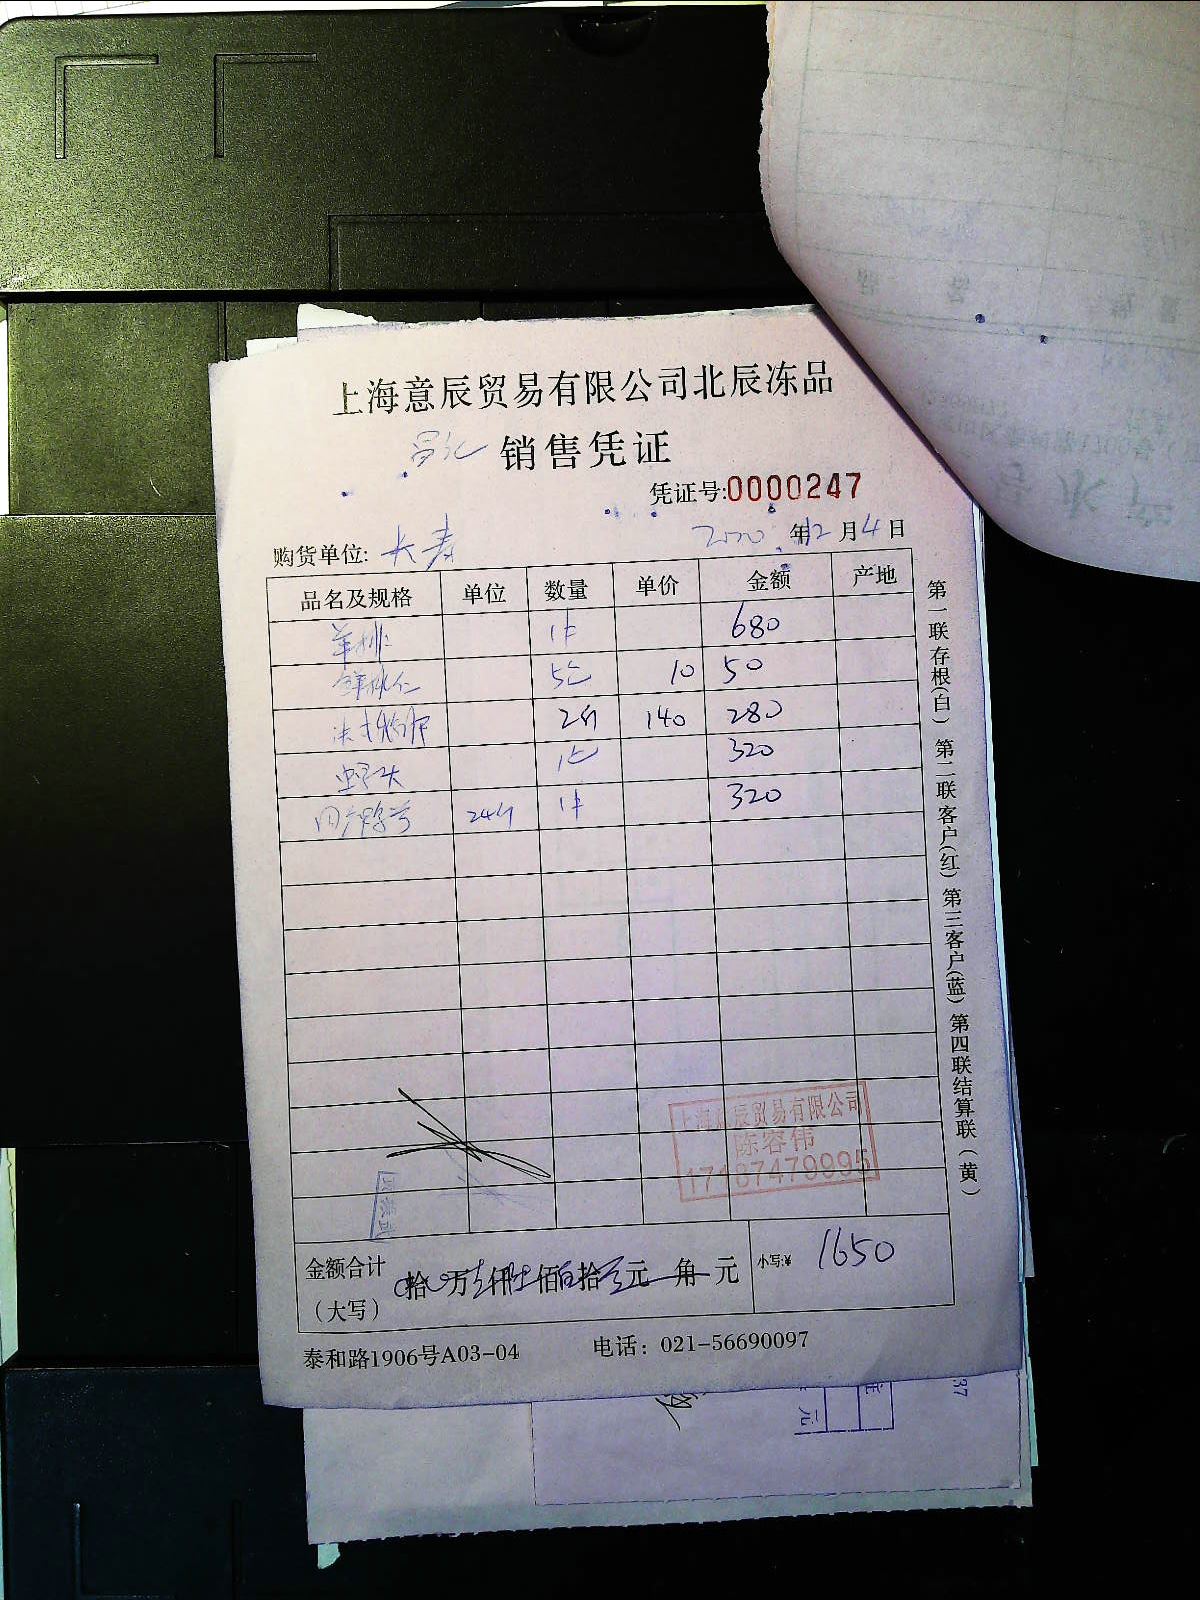 上海意辰贸易有限公司北辰冻品
销售凭证
凭证号:0000247
购货单位: 长寿 2020 年 12 月 4 日
品名及规格 单位 数量 单价 金额 产地
羊排 1件 680
鲜桃仁 5包 10 50
法式鹅肝 2个 140 280
1包 320
24个 1件 320
上海意辰贸易有限公司
陈容伟
17187479995
金额合计
(大写)
拾 万 仟 佰 拾 元 角 元
小写:¥ 1650
泰和路1906号A03-04 电话: 021-56690097
第一联存根(白) 第二联客户(红) 第三客户(蓝) 第四联结算联(黄)